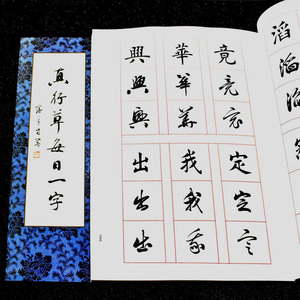 真行草每日一字
興 華 竟
興 華 竟
興 華 竟
出 我 定
出 我 定
出 我 定
滔
滔